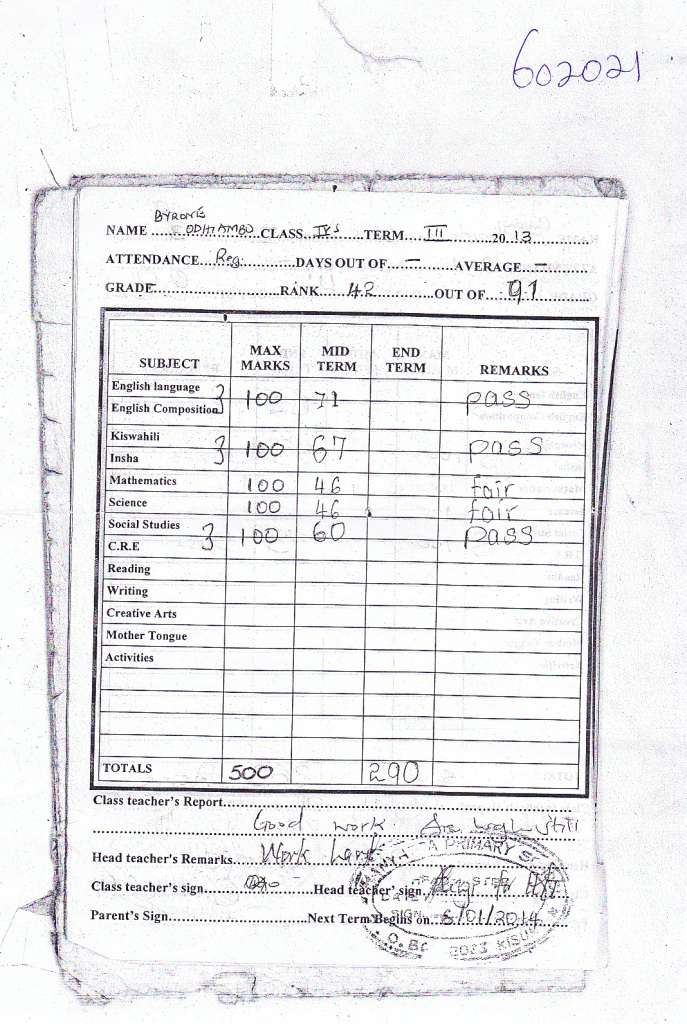 602021
BYRONE
NAME ODHIAMBO CLASS TERM III 2013
ATTENDANCE Reg. DAYS OUT OF – AVERAGE –
GRADE RANK 42 OUT OF 91
SUBJECT MAX MARKS MID TERM END TERM REMARKS
English language
English Composition } 100 71 pass
Kiswahili
Insha } 100 67 pass
Mathematics 100 46 fair
Science 100 46 fair
Social Studies
C.R.E } 100 60 pass
Reading
Writing
Creative Arts
Mother Tongue
Activities
TOTALS 500 290
Class teacher's Report
Good work Aim high still
Head teacher's Remarks Work hard
Class teacher's sign Head teacher' sign
Parent's Sign Next Term Begins on 6/01/2014
PRIMARY
DATE
SIGN